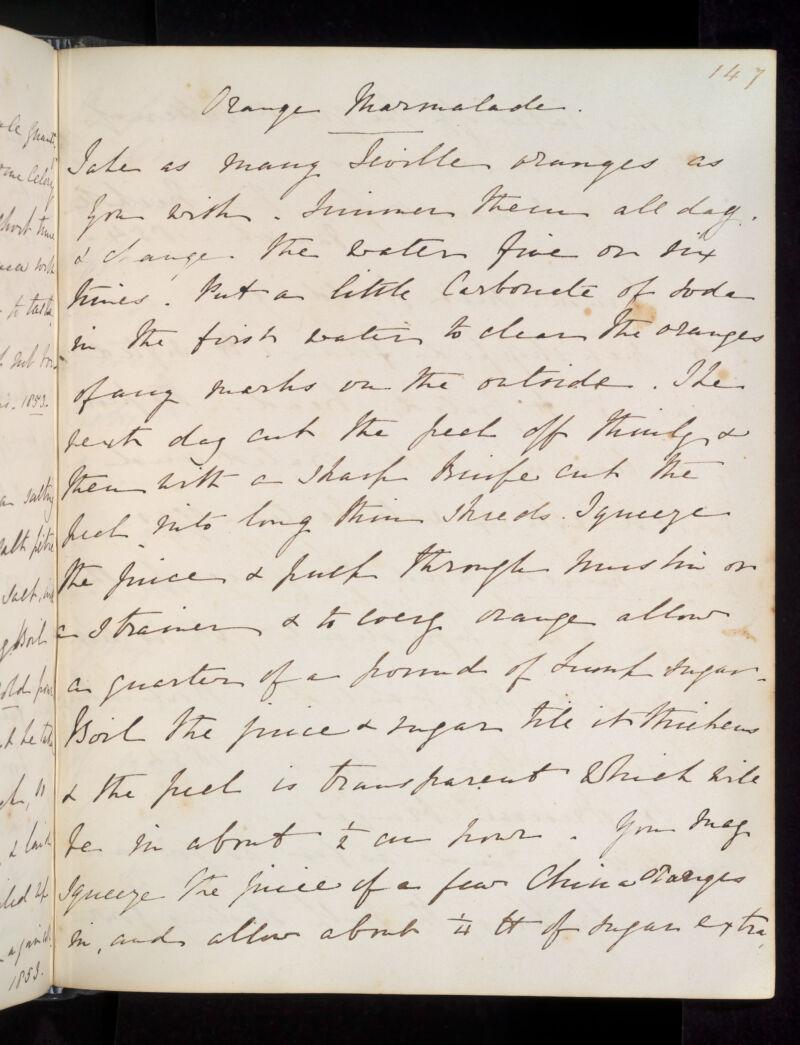 147
Orange Marmalade.
Take as many Seville oranges as
you wish. Simmer them all day.
& change the water five or six
times. Put a little Carbonate of Soda
in the first water to clean the oranges
of any marks on the outside. The
next day cut the peel off thinly &
then with a sharp knife cut the
peel into long thin shreds. Squeeze
the juice & pulp through muslin or
a strainer & to every orange allow
a quarter of a pound of Lump sugar.
Boil the juice & sugar till it thickens
& the peel is transparent which will
be in about ½ an hour. You may
squeeze the juice of a few China oranges
in, and allow about ¼ lb of sugar extra,
1853.
a salting
salt petre
salt,
Boil
1853.